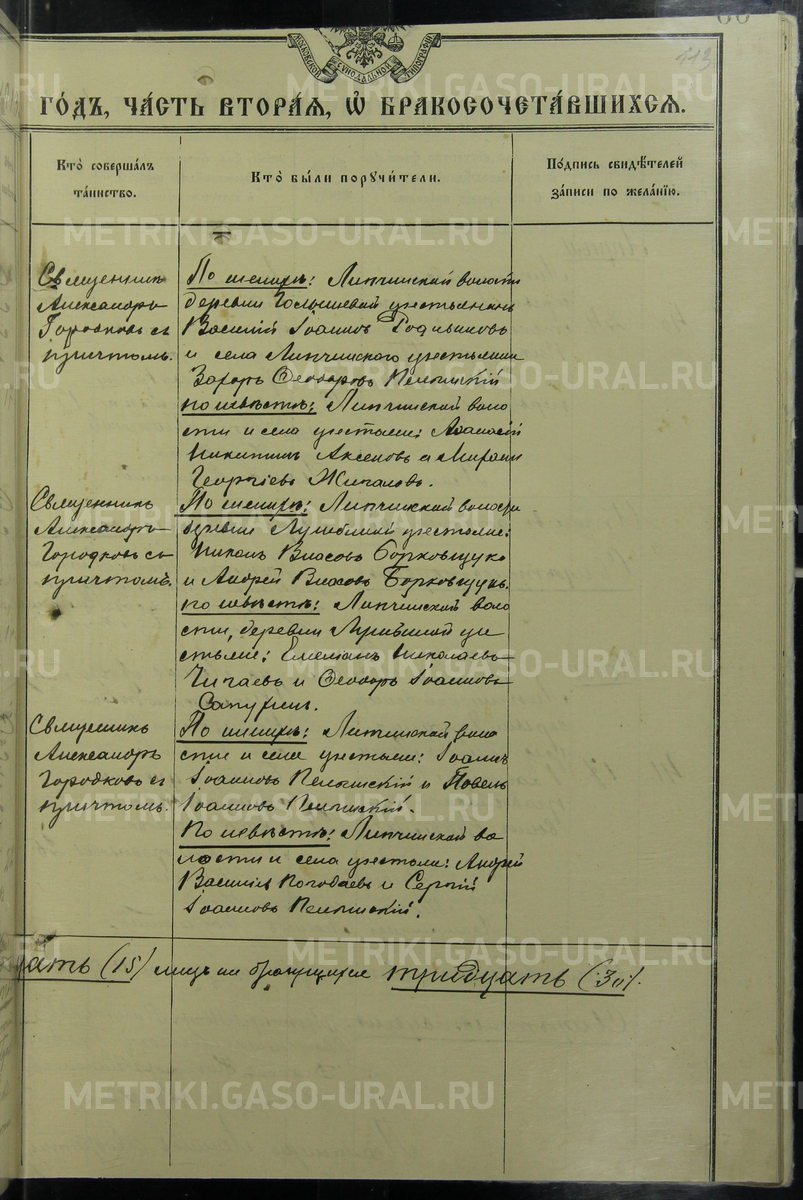 113
МОСКОВСКОЙ СѴНОДАЛЬНОЙ ТИПОГРАФІИ
METRIKI.GASO-URAL.RU
ГО́ДЪ, ЧА́СТЬ ВТОРА́Я, Ѡ҆ БРАКОСОЧЕТА́ВШИХСЯ.
Кто̀ соверша́лъ
та́инство.
Кто̀ бы́ли порꙋчи́тели.
По́дпись свидѣ́телей
за́писи по жела́нїю.
Священникъ
Александръ
Городковъ съ
причтомъ.
По женихѣ: Липчинской волости
деревни Голышевой крестьянинъ
Василій Іоанновъ Родионовъ
и села Липчинского крестьянинъ
Захаръ Ѳеодоровъ
по невѣстѣ: Липчинской воло
сти и села крестьяне: Аѳанасій
Никитинъ Аксеновъ и Миронъ
Георгіевъ
Священникъ
Александръ
Городковъ съ
причтомъ.
По женихѣ: Липчинской волости
деревни крестьяне:
Никонъ Власовъ Борковщукъ
и Андрей Власовъ Борковщукъ.
по невѣстѣ: Липчинской воло
сти, деревни кре
стьяне: Емельянъ Николаевъ
Чигаевъ и Ѳеодоръ Іоанновъ
Сапугинъ.
Священникъ
Александръ
Городковъ съ
причтомъ.
По женихѣ: Липчинской воло
сти и села крестьяне: Іоаннъ
Іоанновъ и Павелъ
Іоанновъ
По невѣстѣ: Липчинской во
лости и села крестьяне: Андрей
Василіевъ Погодаевъ и Сергій
Іоанновъ
дать (15) лицъ ихъ тридцать (30).